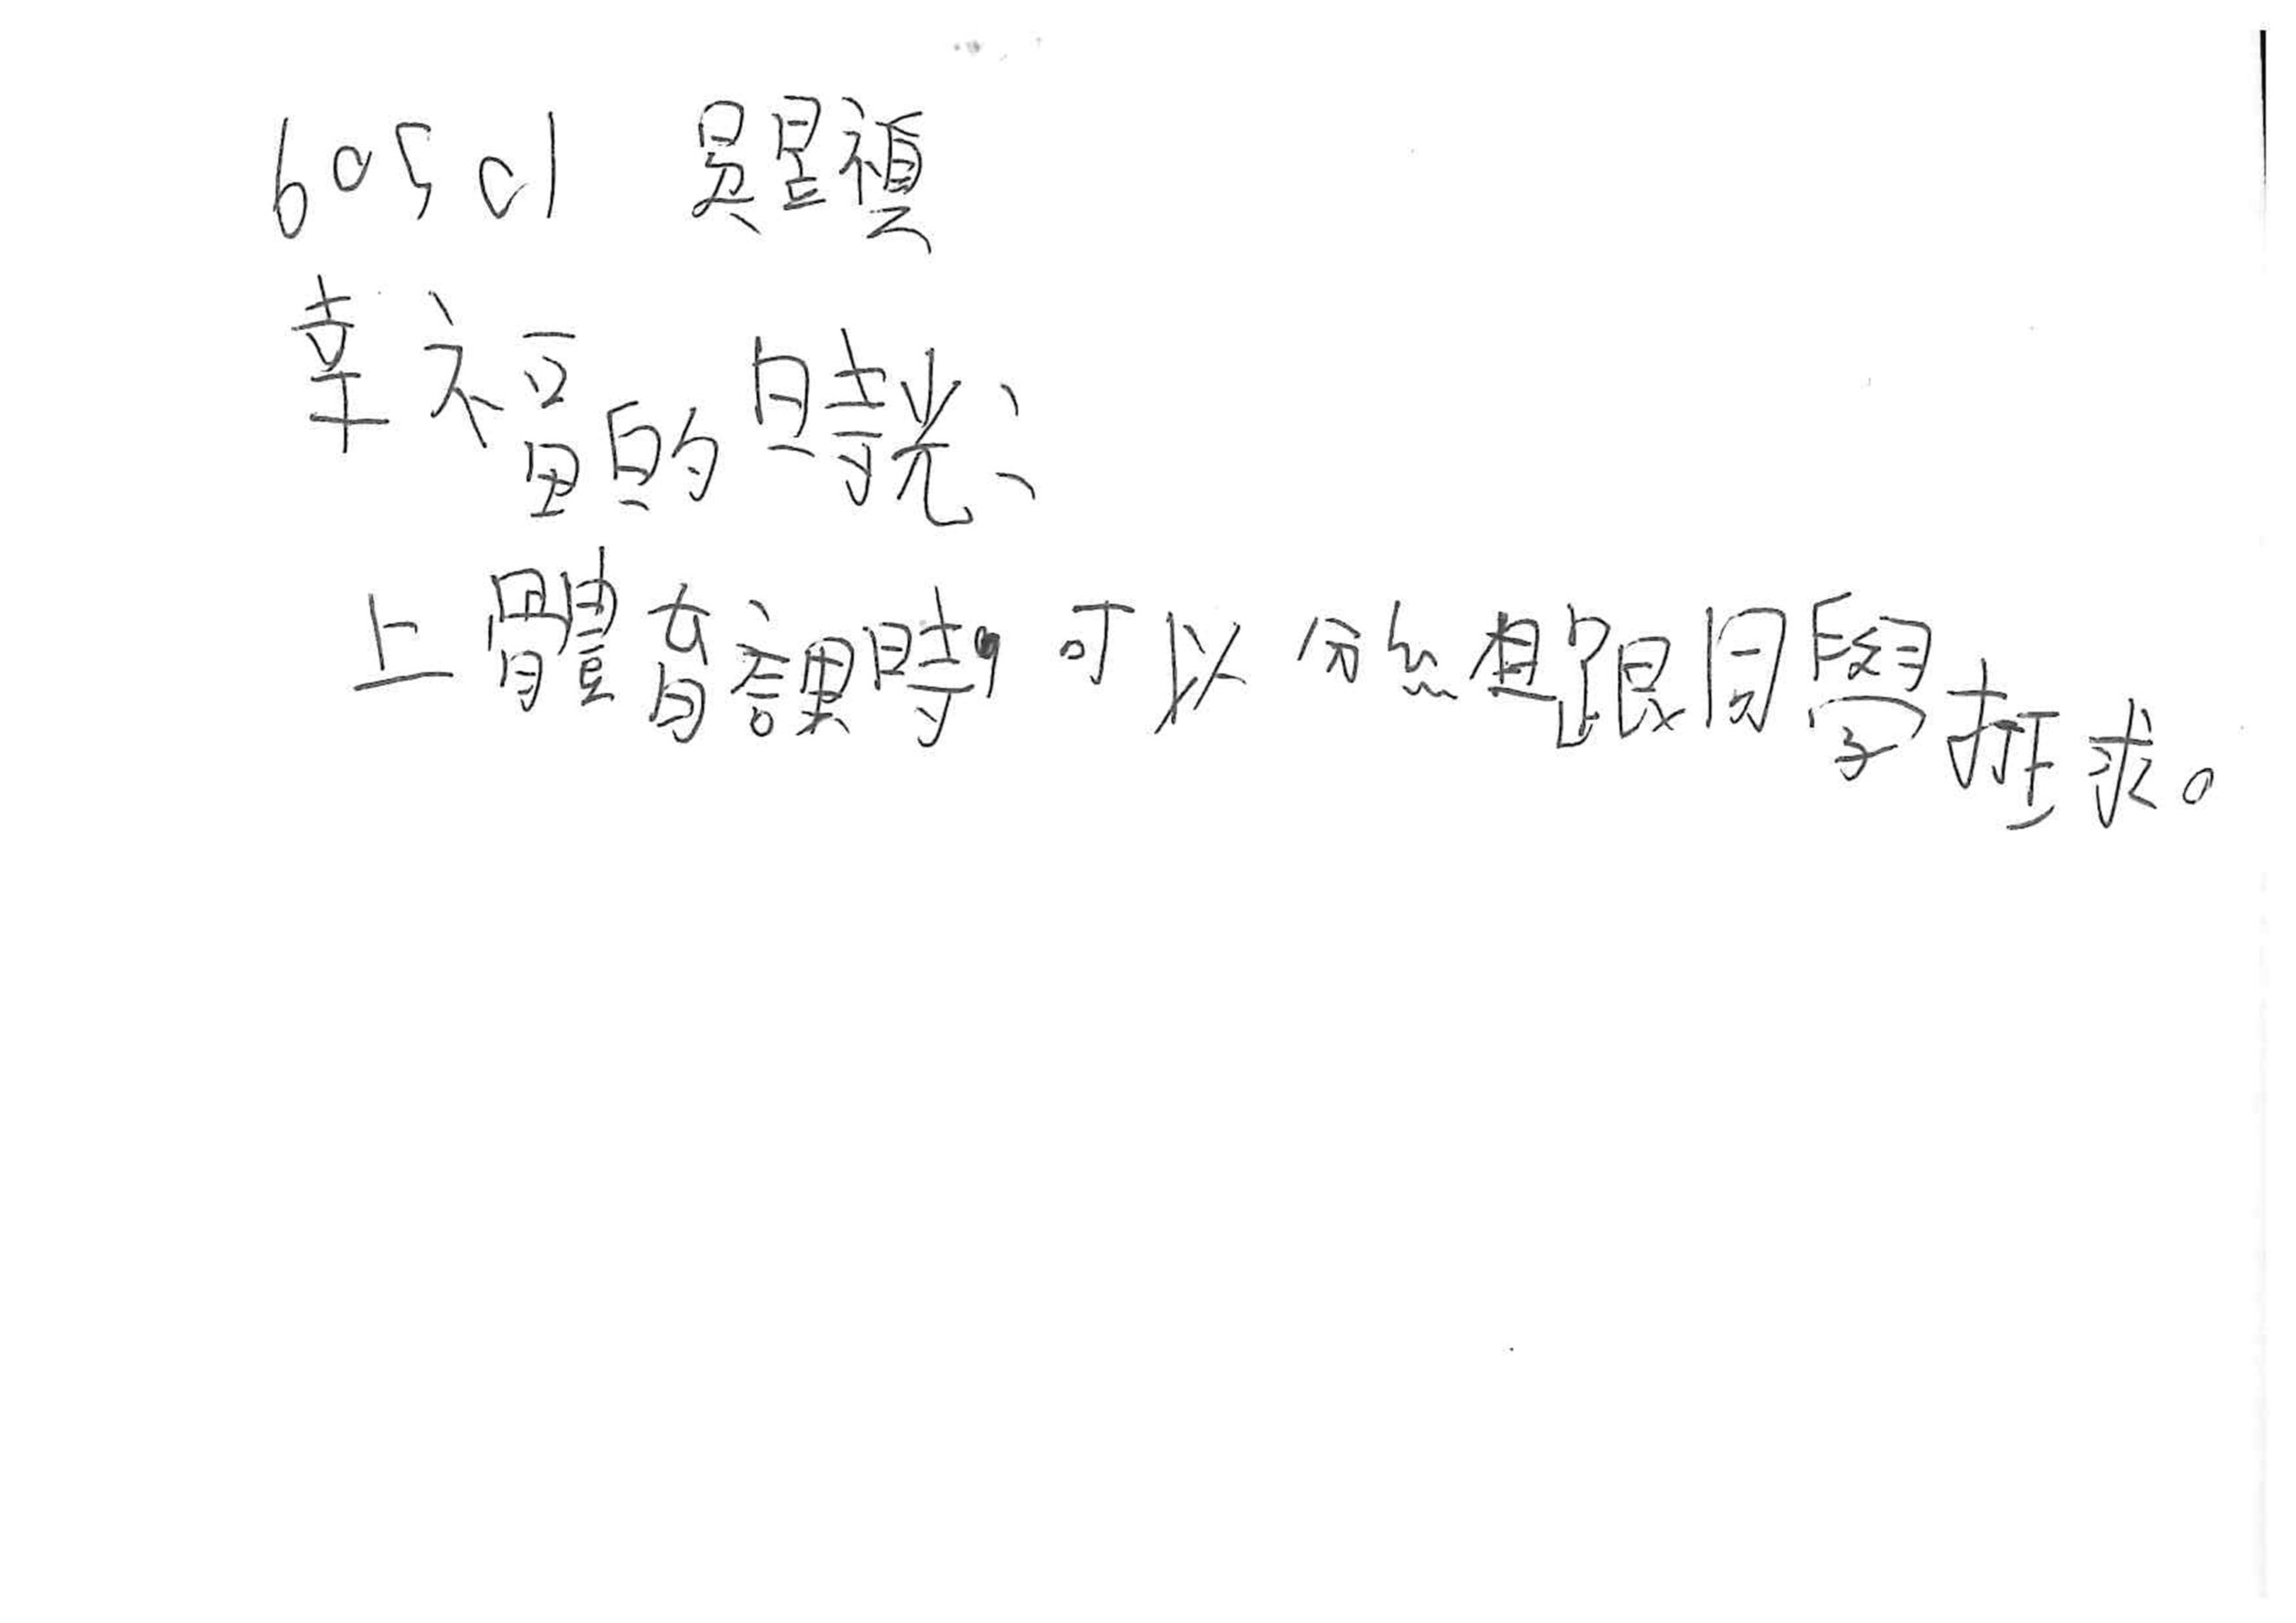 60501 吳星禛
幸福的時光:
上體育課時可以分組想跟同學打球。